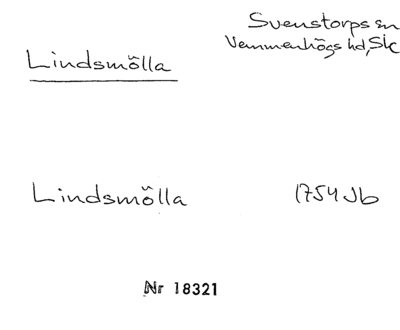 Svenstorps sn
Vemmenhögs hd, Sk
Lindsmölla
Lindsmölla 1754 Jb
Nr 18321